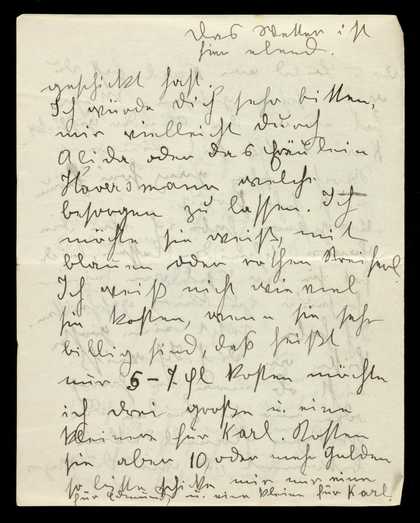 Das Wetter ist
hier elend.
geschickt hast.
Ich würde Dich sehr bitten,
mir vielleicht durch
Alida oder das Fräulein
Haversmann welche
besorgen zu lassen. Ich
möchte sie weiß mit
blauen oder rothen Streiferl.
Ich weiß nicht wie viel
sie kosten, wenn sie sehr
billig sind, daß heißt
nur 5–7 fl kosten möchte
ich drei große u. eine
kleinere für Karl. Kosten
sie aber 10 oder mehr Gulden
so bitte schicke mir nur eine
für Edmund u. eine kleine für Karl.